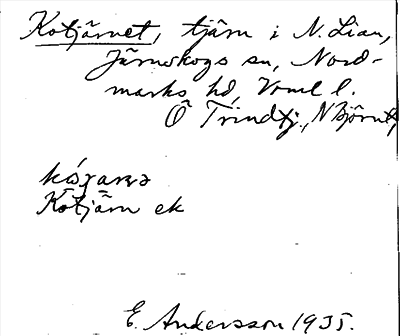 Kotjärnet, tjärn i N. Lian,
Järnskogs sn, Nord-
marks hd, Vrml l.
Ö Trindtj., N Björnt,
Kotjärn ek
E. Andersson 1935.